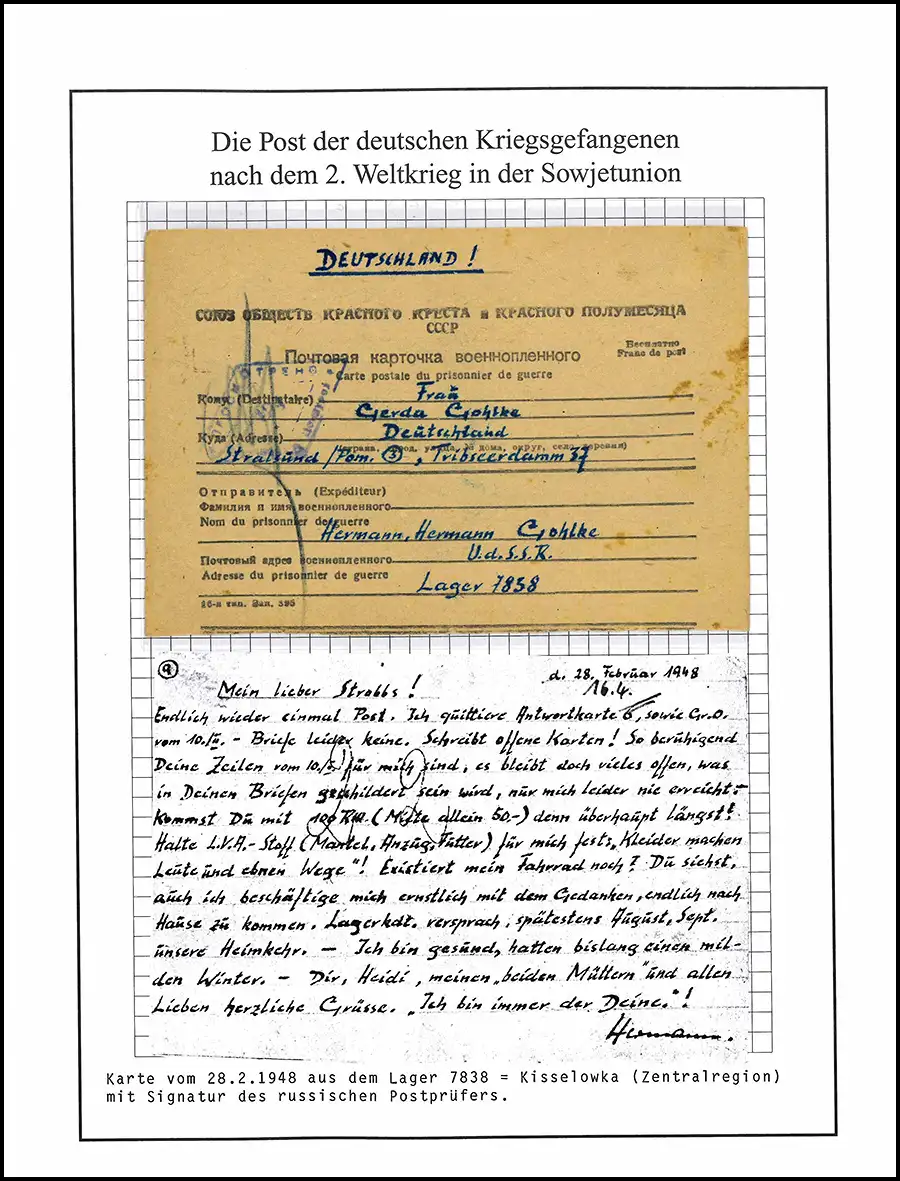 Die Post der deutschen Kriegsgefangenen
nach dem 2. Weltkrieg in der Sowjetunion
DEUTSCHLAND !
СОЮЗ ОБЩЕСТВ КРАСНОГО КРЕСТА и КРАСНОГО ПОЛУМЕСЯЦА
СССР
Почтовая карточка военнопленного
Бесплатно
Franc de port
Carte postale du prisonnier de guerre
Кому (Destinataire) Frau
Gerda Gohlke
Куда (Adresse) Deutschland
Stralsund /Pom. ③, Tribseerdamm 37
Отправитель (Expéditeur)
Фамилия и имя военнопленного
Nom du prisonnier de guerre
Hermann, Hermann Gohlke
Почтовый адрес военнопленного U.d.S.S.R.
Adresse du prisonnier de guerre
Lager 7838
26-я тип. Зак. 395
d. 28. Februar 1948
Mein lieber Strobbs ! 16.4.
Endlich wieder einmal Post. Ich quittiere Antwortkarte 6, sowie Gr.O.
vom 10.II. - Briefe leider keine. Schreibt offene Karten! So beruhigend
Deine Zeilen vom für mich sind, es bleibt doch vieles offen, was
in Deinen Briefen geschildert sein wird, nur mich leider nie erreicht.
Kommst Du mit 100 RM. (Miete allein 50.-) denn überhaupt längst?
Halte L.V.A.-Stoff (Mantel, Anzug, Futter) für mich fest, „Kleider machen
Leute und ebnen Wege"! Existiert mein Fahrrad noch? Du siehst,
auch ich beschäftige mich ernstlich mit dem Gedanken, endlich nach
Hause zu kommen. Lagerkdt. versprach, spätestens August, Sept.
unsere Heimkehr. — Ich bin gesund, hatten bislang einen mil-
den Winter. - Dir, Heidi, meinen „beiden Müttern" und allen
Lieben herzliche Grüsse. „Ich bin immer der Deine."!
Hermann.
Karte vom 28.2.1948 aus dem Lager 7838 = Kisselowka (Zentralregion)
mit Signatur des russischen Postprüfers.